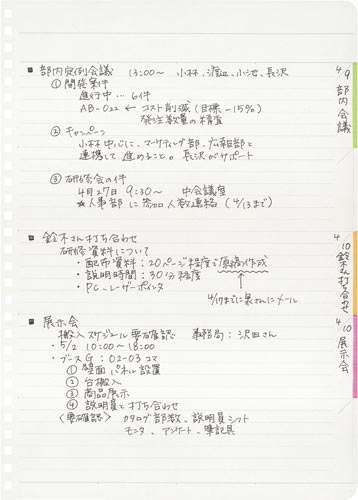 ■ 部内定例会議 13:00～ 小林、渡辺、小池、長沢
① 開発案件
進行中… 6件
AB-022 ← コスト削減(目標-15%)
発注数量の精査
② キャンペーン
小林中心に、マーケティング部、広報部と
連携して進めること。長沢がサポート
③ 研修会の件
4月27日 9:30～ 中会議室
★人事部に参加人数連絡(4/13まで)
■ 鈴木さん打ち合わせ
研修資料について
・配布資料：20ページ程度で原稿作成
・説明時間：30分程度
・PC、レーザーポインタ
4/17までに泉さんにメール
■ 展示会
搬入スケジュール要確認 事務局：沢田さん
・5/2 10:00～18:00
・ブースG：02-03コマ
① 壁面パネル設置
② 台搬入
③ 商品展示
④ 説明員と打ち合わせ
〈要確認〉 カタログ部数、説明員シフト
モニタ、アンケート、筆記具
4/9 部内会議
4/10 鈴木さん打ち合わせ
4/10 展示会